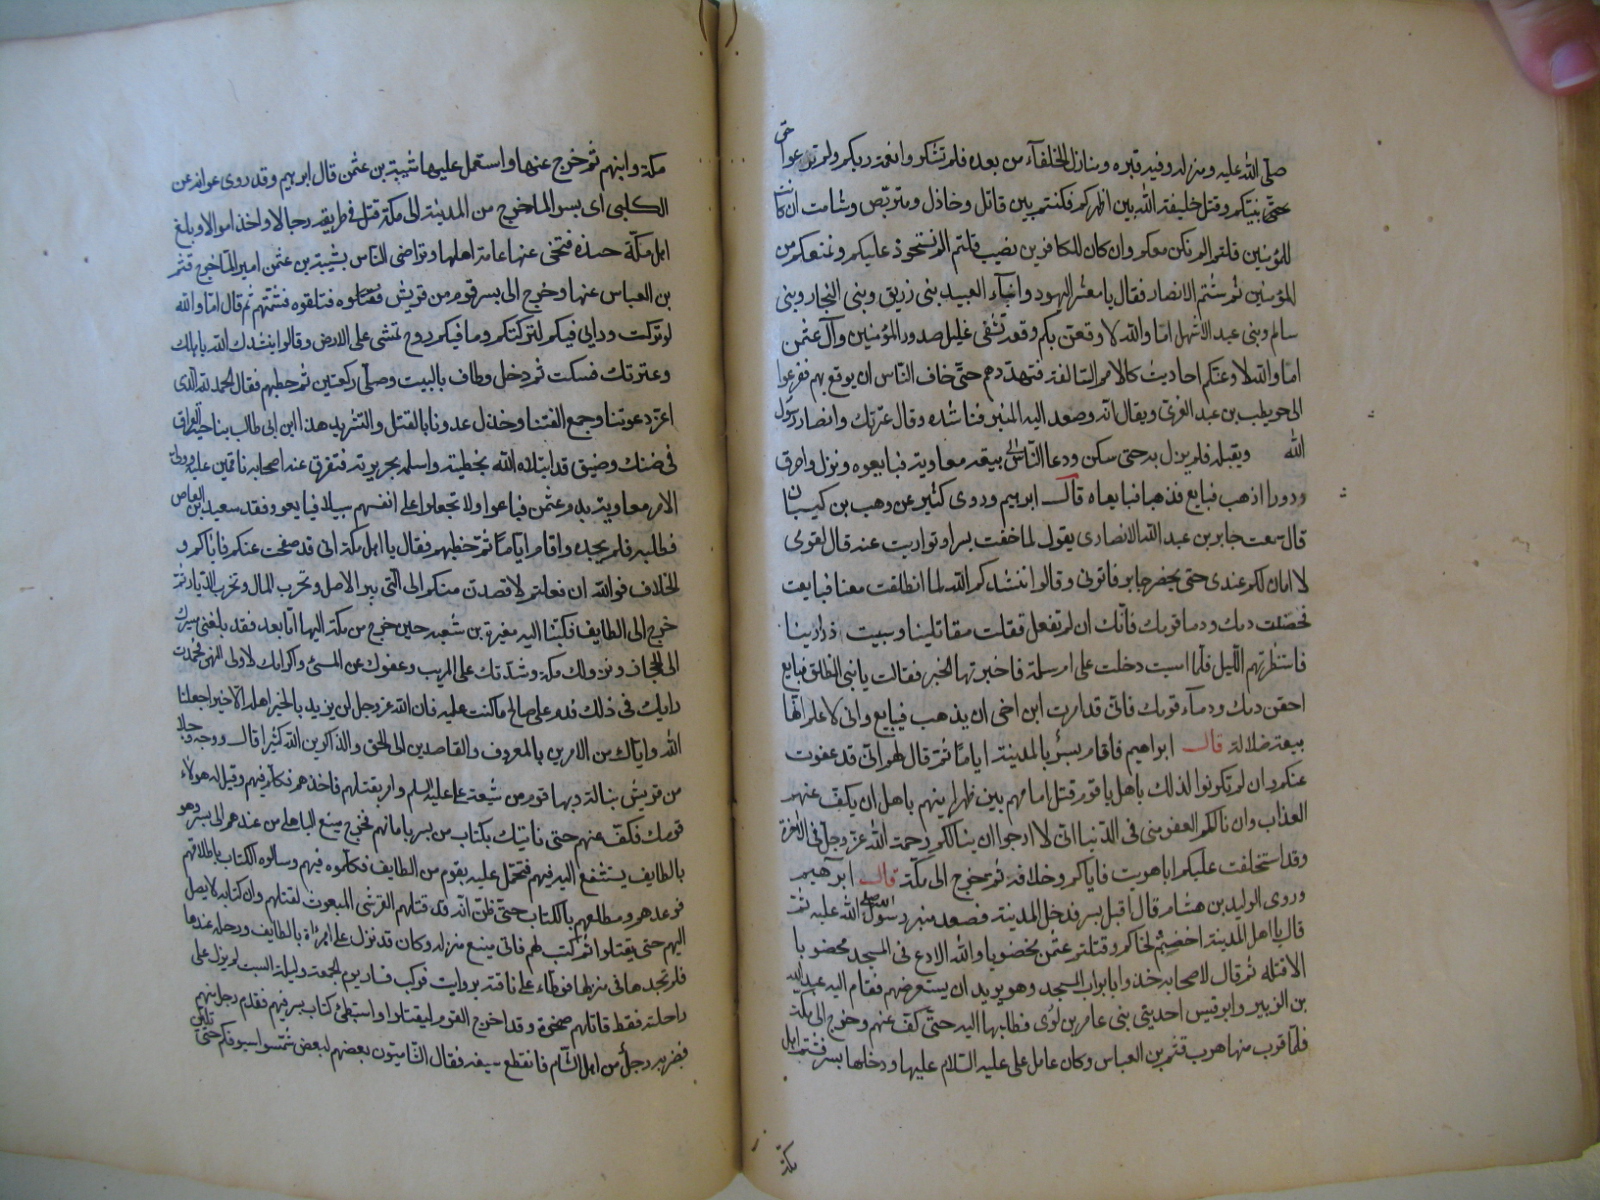 صلى الله عليه ومنزله وفيه قبره ومنازل الخلفآء من بعده فلم تشكروا نعمة ربكم ولم ترعوا حق
نبيكم وقتل خليفة الله بين اظهركم فكنتم بين قاتل وخاذل ومتربص وشامت ان كانت
للمؤمنين قلتم الم نكن معكم وان كان للكافرين نصيب قلتم الم نستحوذ عليكم ونمنعكم من
المؤمنين ثم شتم الانصار فقال يا معشر اليهود وابنآء العبيد بنى زريق وبنى النجار وبنى
سالم وبنى عبد الاشهل اما والله لاوقعن بكم وقعة تشفى غليل صدور المؤمنين وآل عثمن
اما والله لادعنكم احاديث كالامم السالفة فتهددهم حتى خاف الناس ان يوقع بهم ففزعوا
الى حويطب بن عبد العزى ويقال انه وصعد اليه المنبر فناشده وقال عترتك وانصار رسول
الله ويقبله فلم يزل به حتى سكن ودعا الناس الى بيعة معاوية فبايعوه ونزل واحرق
ودورا اذهب فبايع فذهبا فبايعاه قال ابرهيم وروى كثير عن وهب بن كيسان
قال سمعت جابر بن عبد الله الانصارى يقول لما خفت بسرا وتواريت عنه قال لقومى
لا امان لكم عندى حتى يحضر جابر فاتونى وقالوا ننشدكم الله لما انطلقت معنا فبايعت
فحقنت دمك ودما قومك فانك ان لم تفعل قتلت مقاتلينا وسبيت ذرارينا
فاستنظرتهم الليل فلما امسيت دخلت على ام سلمة فاخبرتها الخبر فقالت يا بنى انطلق فبايع
احقن دمك ودمآء قومك فانى قد امرت ابن اخى ان يذهب فيبايع وانى لاعلم انها
بيعة ضلالة قال ابراهيم فاقام بسر بالمدينة اياما ثم قال لهم انى قد عفوت
عنكم وان لم تكونوا لذلك باهل ما قوم قتل امامهم بين ظهرانيهم باهل ان يكف عنهم
العذاب وان نالكم العفو منى فى الدنيا انى لا ارجوا ان ينالكم رحمت الله عز وجل فى الاخرة
وقد استخلفت عليكم اباهريرة فاياكم وخلافه ثم خرج الى مكة قال ابرهيم
وروى الوليد بن هشام قال اقبل بسر فدخل المدينة فصعد منبر رسول الله صلى الله عليه ثم
قال يا اهل المدينة اخضبتم لحاكم وقتلتم عثمن مخضوبا والله لا ادع فى المسجد مخضوبا
الا قتلته ثم قال لاصحابه خذوا بابواب المسجد وهو يريد ان يستعرضهم فقام اليه عبد الله
بن الزبير وابو قيس احد بنى عامر بن لؤى فطلبا اليه حتى كف عنهم وخرج الى مكة
فلما قرب منها هرب قثم بن العباس وكان عامل على عليه السلام عليها ودخلها بسر فشتم اهل
مكة
مكة وانبهم ثم خرج عنها واستعمل عليها شيبة بن عثمن قال ابرهيم وقد روى عوانه عن
الكلبى اى بسر لما خرج من المدينة الى مكة قتل فى طريقه رجالا واخذ اموالا وبلغ
اهل مكة خبره فتنحى عنها عامة اهلها وتراضى الناس بشيبة بن عثمن اميرا لما خرج قثم
بن العباس عنها وخرج الى بسر قوم من قريش فتلقوه فشتمهم ثم قال اما والله
لو تركت ورايى فيكم لتركتكم وما فيكم روح تمشى على الارض وقالوا ننشدك الله باهلك
وعترتك فسكت ثم دخل وطاف بالبيت وصلى ركعتين ثم خطبهم فقال الحمد لله الذى
اعز دعوتنا وجمع الفتنا وخذل عدونا بالقتل والتشريد هذا ابن ابى طالب بناحية العراق
فى ضنك وضيق قد ابتلاه الله بخطيئته واسلمه بجريرته فتفرق عنه اصحابه ناقمين عليه وولى
الامر معاوية بدم عثمن فبايعوا ولا تجعلوا على انفسهم سبيلا فبايعوه وفقد سعيد بن العاص
فطلبه فلم يجده واقام اياما ثم خطبهم فقال يا اهل مكة انى قد صفحت عنكم فاياكم و
الخلاف فوالله ان فعلتم لاقصدن منكم الى التى تبير الاصل وتحرب المال وتخرب الديار ثم
خرج الى الطايف فكتب اليه مغيرة بن شعبه حين خرج من مكة اليها اما بعد فقد بلغنى مسيرك
الى الحجاز ونزولك مكة وشدتك على المريب وعفوك عن المسئ واكرامك لاولى النهى فحمدت
رايك فى ذلك فدم على صالح ما كنت عليه فان الله عز وجل لن يزيد بالخير اهله الا خيرا جعلنا
الله واياك من الامرين بالمعروف والقاصدين الى الحق والذاكرين الله كثيرا قال ووجه رجلا
من قريش بتبالة وبها قوم من شيعة على عليه السلم وامر بقتلهم فاخذهم فكلم فيهم وقيل له هولاء
قومك فكف عنهم حتى ناتيك بكتاب من بسر بامانهم فخرج منيع الباهلى من عندهم الى بسر وهو
بالطايف يستشفع اليه فيهم فتحمل عليه بقوم من الطايف فكلموه فيهم وسالوه الكتاب باطلاقهم
فوعدهم ومطلهم بالكتاب حتى ظن انه قد قتلهم القرشى المبعوث لقتلهم وان كتابه لا يصل
اليهم حتى يقتلوا ثم كتب لهم فاتى منيع منزله وكان قد نزل على امراة بالطايف ورحله عندها
فلم يجدها فى منزلها فوطاء على ناقته بردايه فركب فسار يوم الجمعة وليلة السبت لم ينزل على
راحلته فقط قاتاهم ضحوة وقد اخرج القوم ليقتلوا واستبطئ كتاب بسر فيهم فقدم رجل منهم
فضربه رجل من اهل الشام فانقطع سيفه فقال الشاميون بعضهم لبعض شمسوا سيوفكم حتى تلين